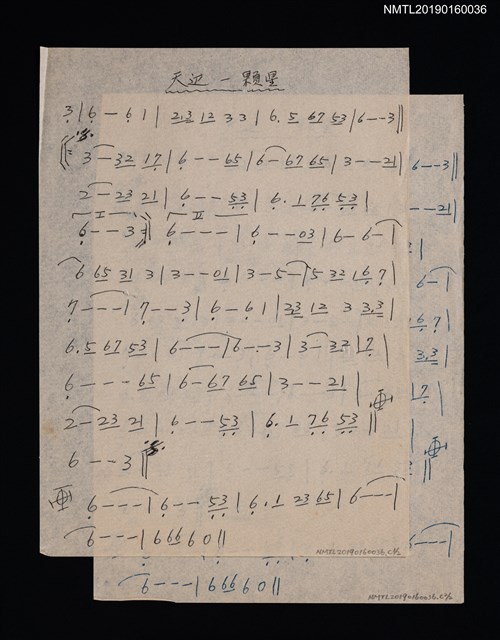 NMTL20190160036
天邊一顆星
3 | 6 - 6 1 | 23 12 3 3 | 6. 5 67 53 | 6 - - 3 ||
3 - 32 17 | 6 - - 65 | 6 - 67 65 | 3 - - 21 | 6 - - 3 ||
2 - 23 21 | 6 - - 53 | 6. 1 76 53 | - - 21 |
I II
6 - - 3 || 6 - - - | 6 - - 03 | 6 - 6 - |
6 65 31 3 | 3 - - 01 | 3 - 5 - | 5 32 16 7 | 6 - |
7 - - - | 7 - - 3 | 6 - 6 1 | 23 12 3 3.3 | 6 7 |
6. 5 67 53 | 6 - - - | 6 - - 3 | 3 - 32 17 | 3.3 |
6 - - - 65 | 6 - 67 65 | 3 - - 21 | 17 |
2 - 23 21 | 6 - - 53 | 6. 1 76 53 ||
6 - - 3 ||
6 - - - | 6 - - 53 | 6. 1 23 65 | 6 - - - |
6 - - - | 6 6 6 6 0 || 6 - - - |
NMTL20190160036.c1/2
6 - - - | 6 6 6 6 0 ||
NMTL20190160036.c2/2